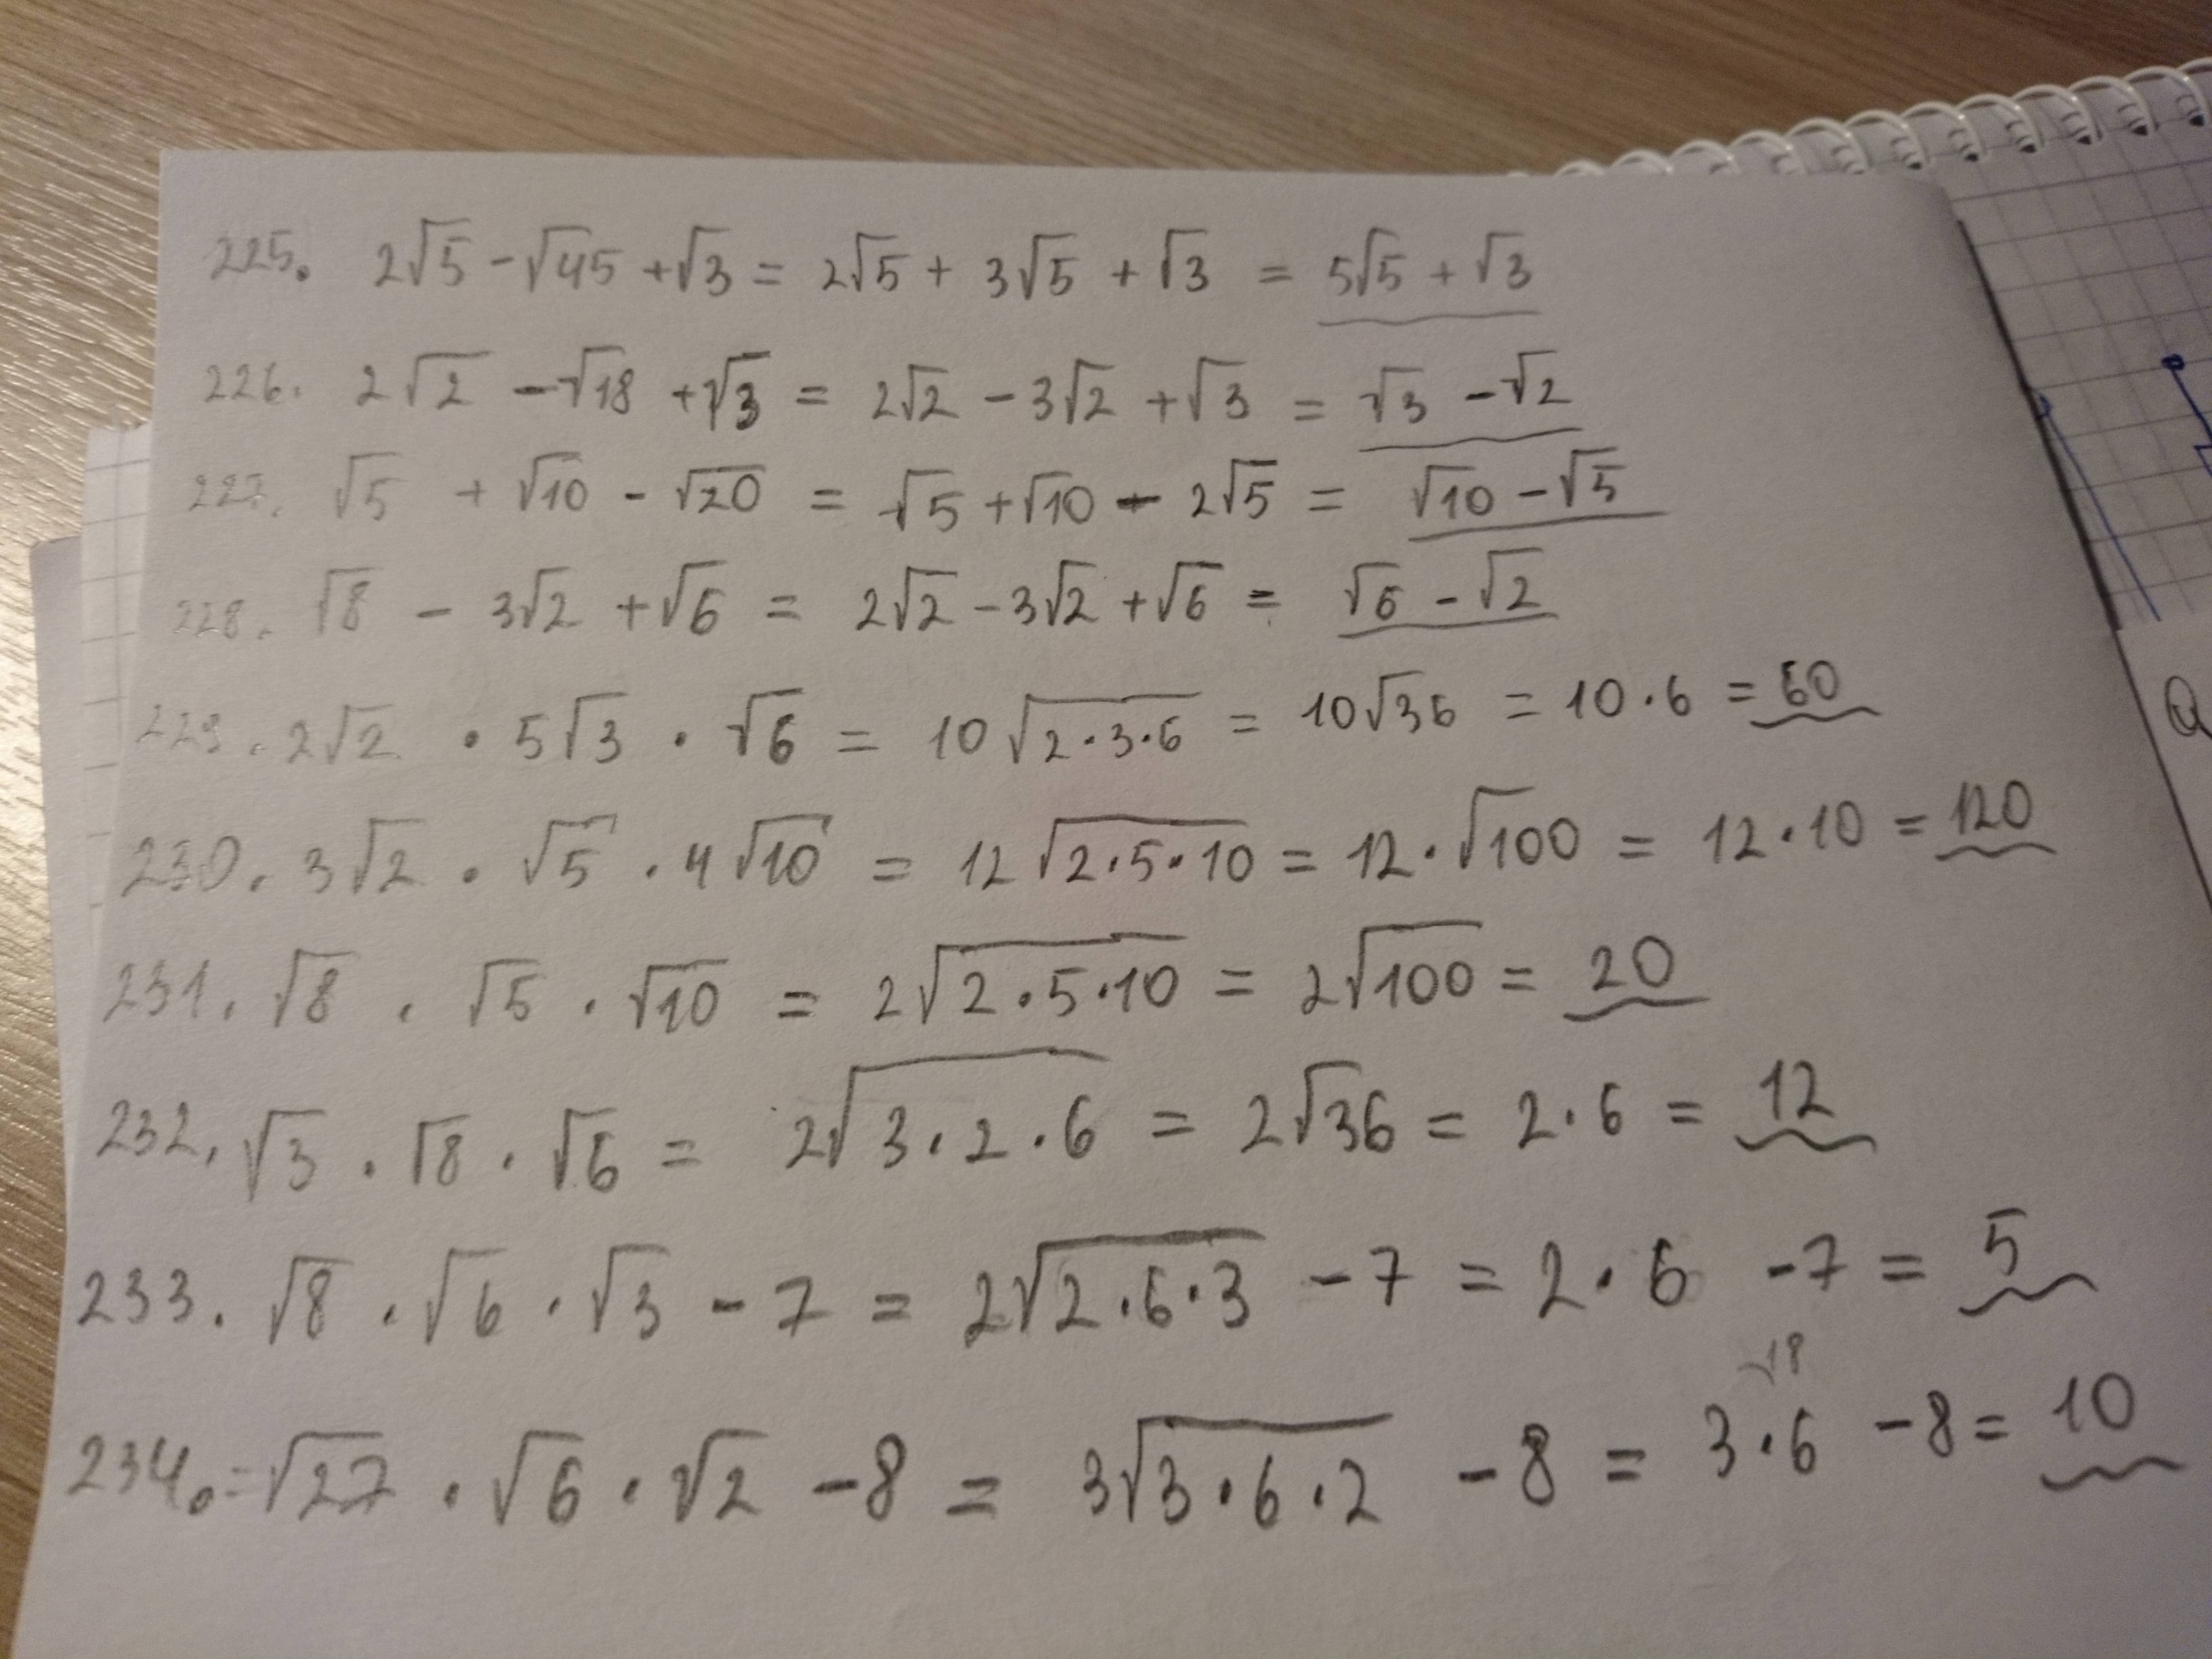 225. 2√5 - √45 + √3 = 2√5 + 3√5 + √3 = 5√5 + √3
226. 2√2 - √18 + √3 = 2√2 - 3√2 + √3 = √3 - √2
227. √5 + √10 - √20 = √5 + √10 - 2√5 = √10 - √5
228. √8 - 3√2 + √6 = 2√2 - 3√2 + √6 = √6 - √2
229. 2√2 · 5√3 · √6 = 10√(2·3·6) = 10√36 = 10·6 = 60
230. 3√2 · √5 · 4√10 = 12√(2·5·10) = 12·√100 = 12·10 = 120
231. √8 · √5 · √10 = 2√(2·5·10) = 2√100 = 20
232. √3 · √8 · √6 = 2√(3·2·6) = 2√36 = 2·6 = 12
233. √8 · √6 · √3 - 7 = 2√(2·6·3) - 7 = 2·6 - 7 = 5
18
234. = √27 · √6 · √2 - 8 = 3√(3·6·2) - 8 = 3·6 - 8 = 10
Q